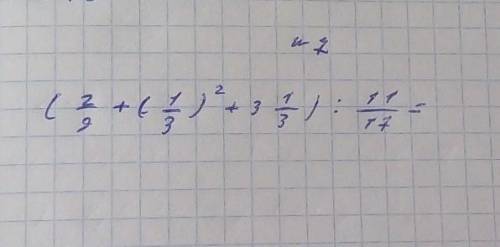 № 2
( 2/9 + ( 1/3 )² + 3 1/3 ) : 11/17 =